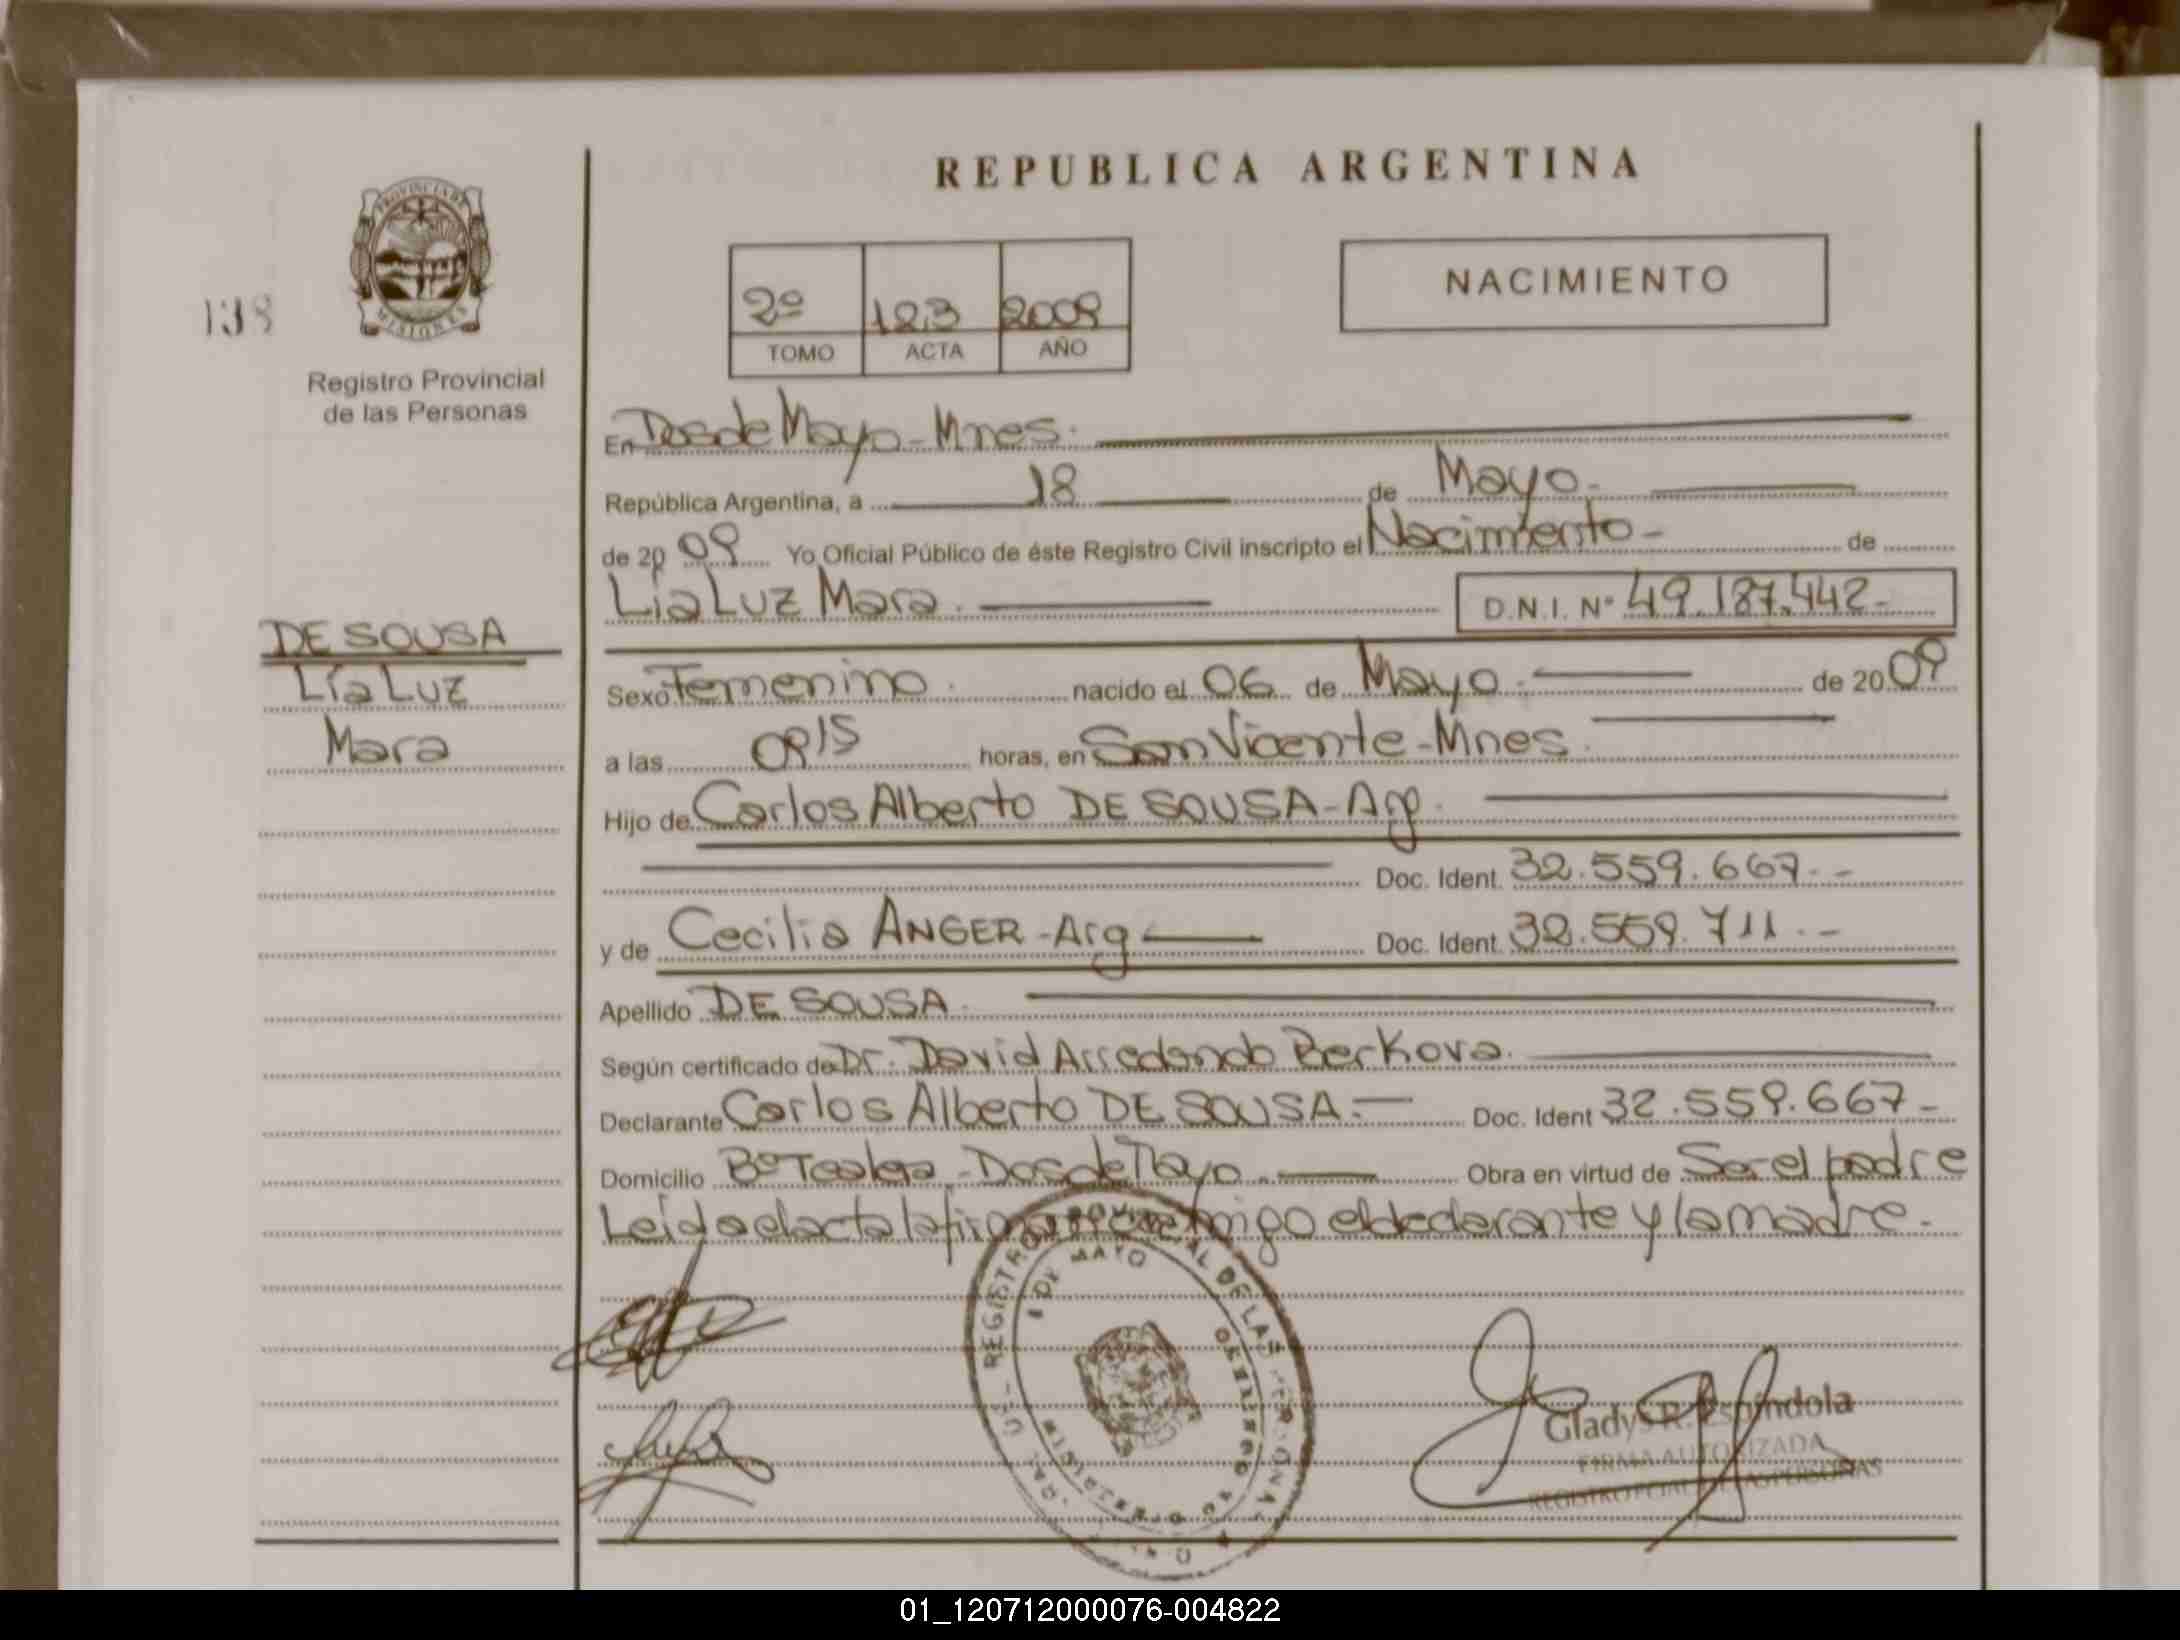 REPUBLICA ARGENTINA
PROVINCIA DE
MISIONES
138
Registro Provincial
de las Personas
2º 123 2009
TOMO ACTA AÑO
NACIMIENTO
En Dos de Mayo - Mnes.
República Argentina, a 18 de Mayo -
de 20 09 Yo Oficial Público de éste Registro Civil inscripto el Nacimiento - de
Lía Luz Mara. D.N.I. Nº 49.187.442-
DE SOUSA
Lía Luz
Mara
Sexo Femenino. nacido el 06 de Mayo. de 20 09
a las 0915 horas, en San Vicente - Mnes.
Hijo de Carlos Alberto DE SOUSA - Arg.
Doc. Ident. 32.559.667.-
y de Cecilia ANGER - Arg Doc. Ident. 32.559.711.-
Apellido DE SOUSA.
Según certificado de Dr. David Arredondo Berkova.
Declarante Carlos Alberto DE SOUSA.- Doc. Ident 32.559.667-
Domicilio Bº - Dos de Mayo. Obra en virtud de Ser el padre
Leída el acta la firman conmigo el declarante y la madre.
REGISTRO PROVINCIAL DE LAS PERSONAS
DE MAYO
Gladys R. Espindola
FIRMA AUTORIZADA
REGISTRO PCIAL DE LAS PERSONAS
01_120712000076-004822